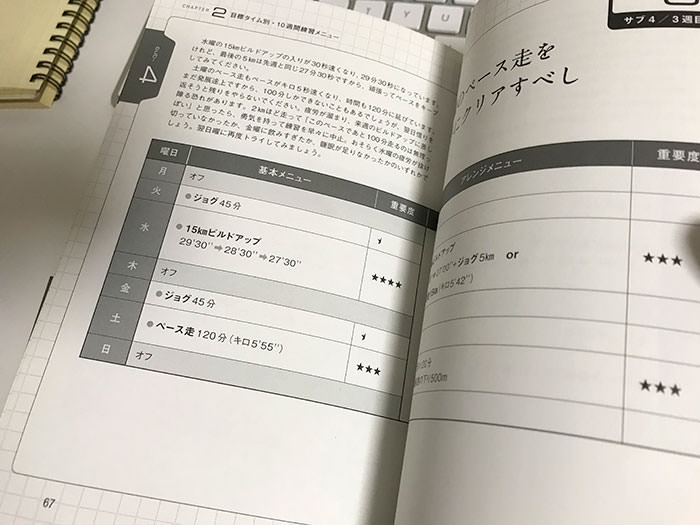 T Y U
CHAPTER 2 目標タイム別・10週間練習メニュー
4
水曜の15kmビルドアップの入りが30秒速くなり、29分30秒になっています。
けれど、最後の5kmは先週と同じ27分30秒ですから、頑張ってペースをキープ
してみてください。
土曜のペース走もペースがキロ5秒速くなり、時間も120分に延びています。
まだ発展途上ですから、100分しかできないこともあるでしょうが、翌日借りを
返そうと残りをやらないでください。疲労が溜まり、来週のビルドアップに悪し
障る恐れがあります。2kmほど走って「このペースであと100分走るのは無理っ
ぽい」と思ったら、勇気を持って練習を早々に中止。おそらく水曜の疲労が抜け
切っていなかったか、金曜に飲みすぎたか、睡眠が足りなかったかのいずれかで
しょう。翌日曜に再度トライしてみましょう。
曜日 基本メニュー 重要度
月 オフ
火 ●ジョグ45分 ★
水 ●15kmビルドアップ
29'30''➡28'30''➡27'30'' ★★★★
木 オフ
金 ●ジョグ45分 ★
土 ●ペース走120分(キロ5'55'') ★★★
日 オフ
67
サブ4/3週目
ペース走を
クリアすべし
アレンジメニュー 重要度
アップ
+ジョグ5km or
(キロ5'42'') ★★★
500m ★★★